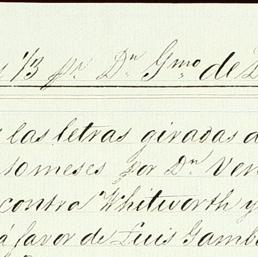 73 pr. Dn Gmo de
las letras giradas a
10 meses por Dn Ven
contra Whitworth y
á favor de Luis Gamb